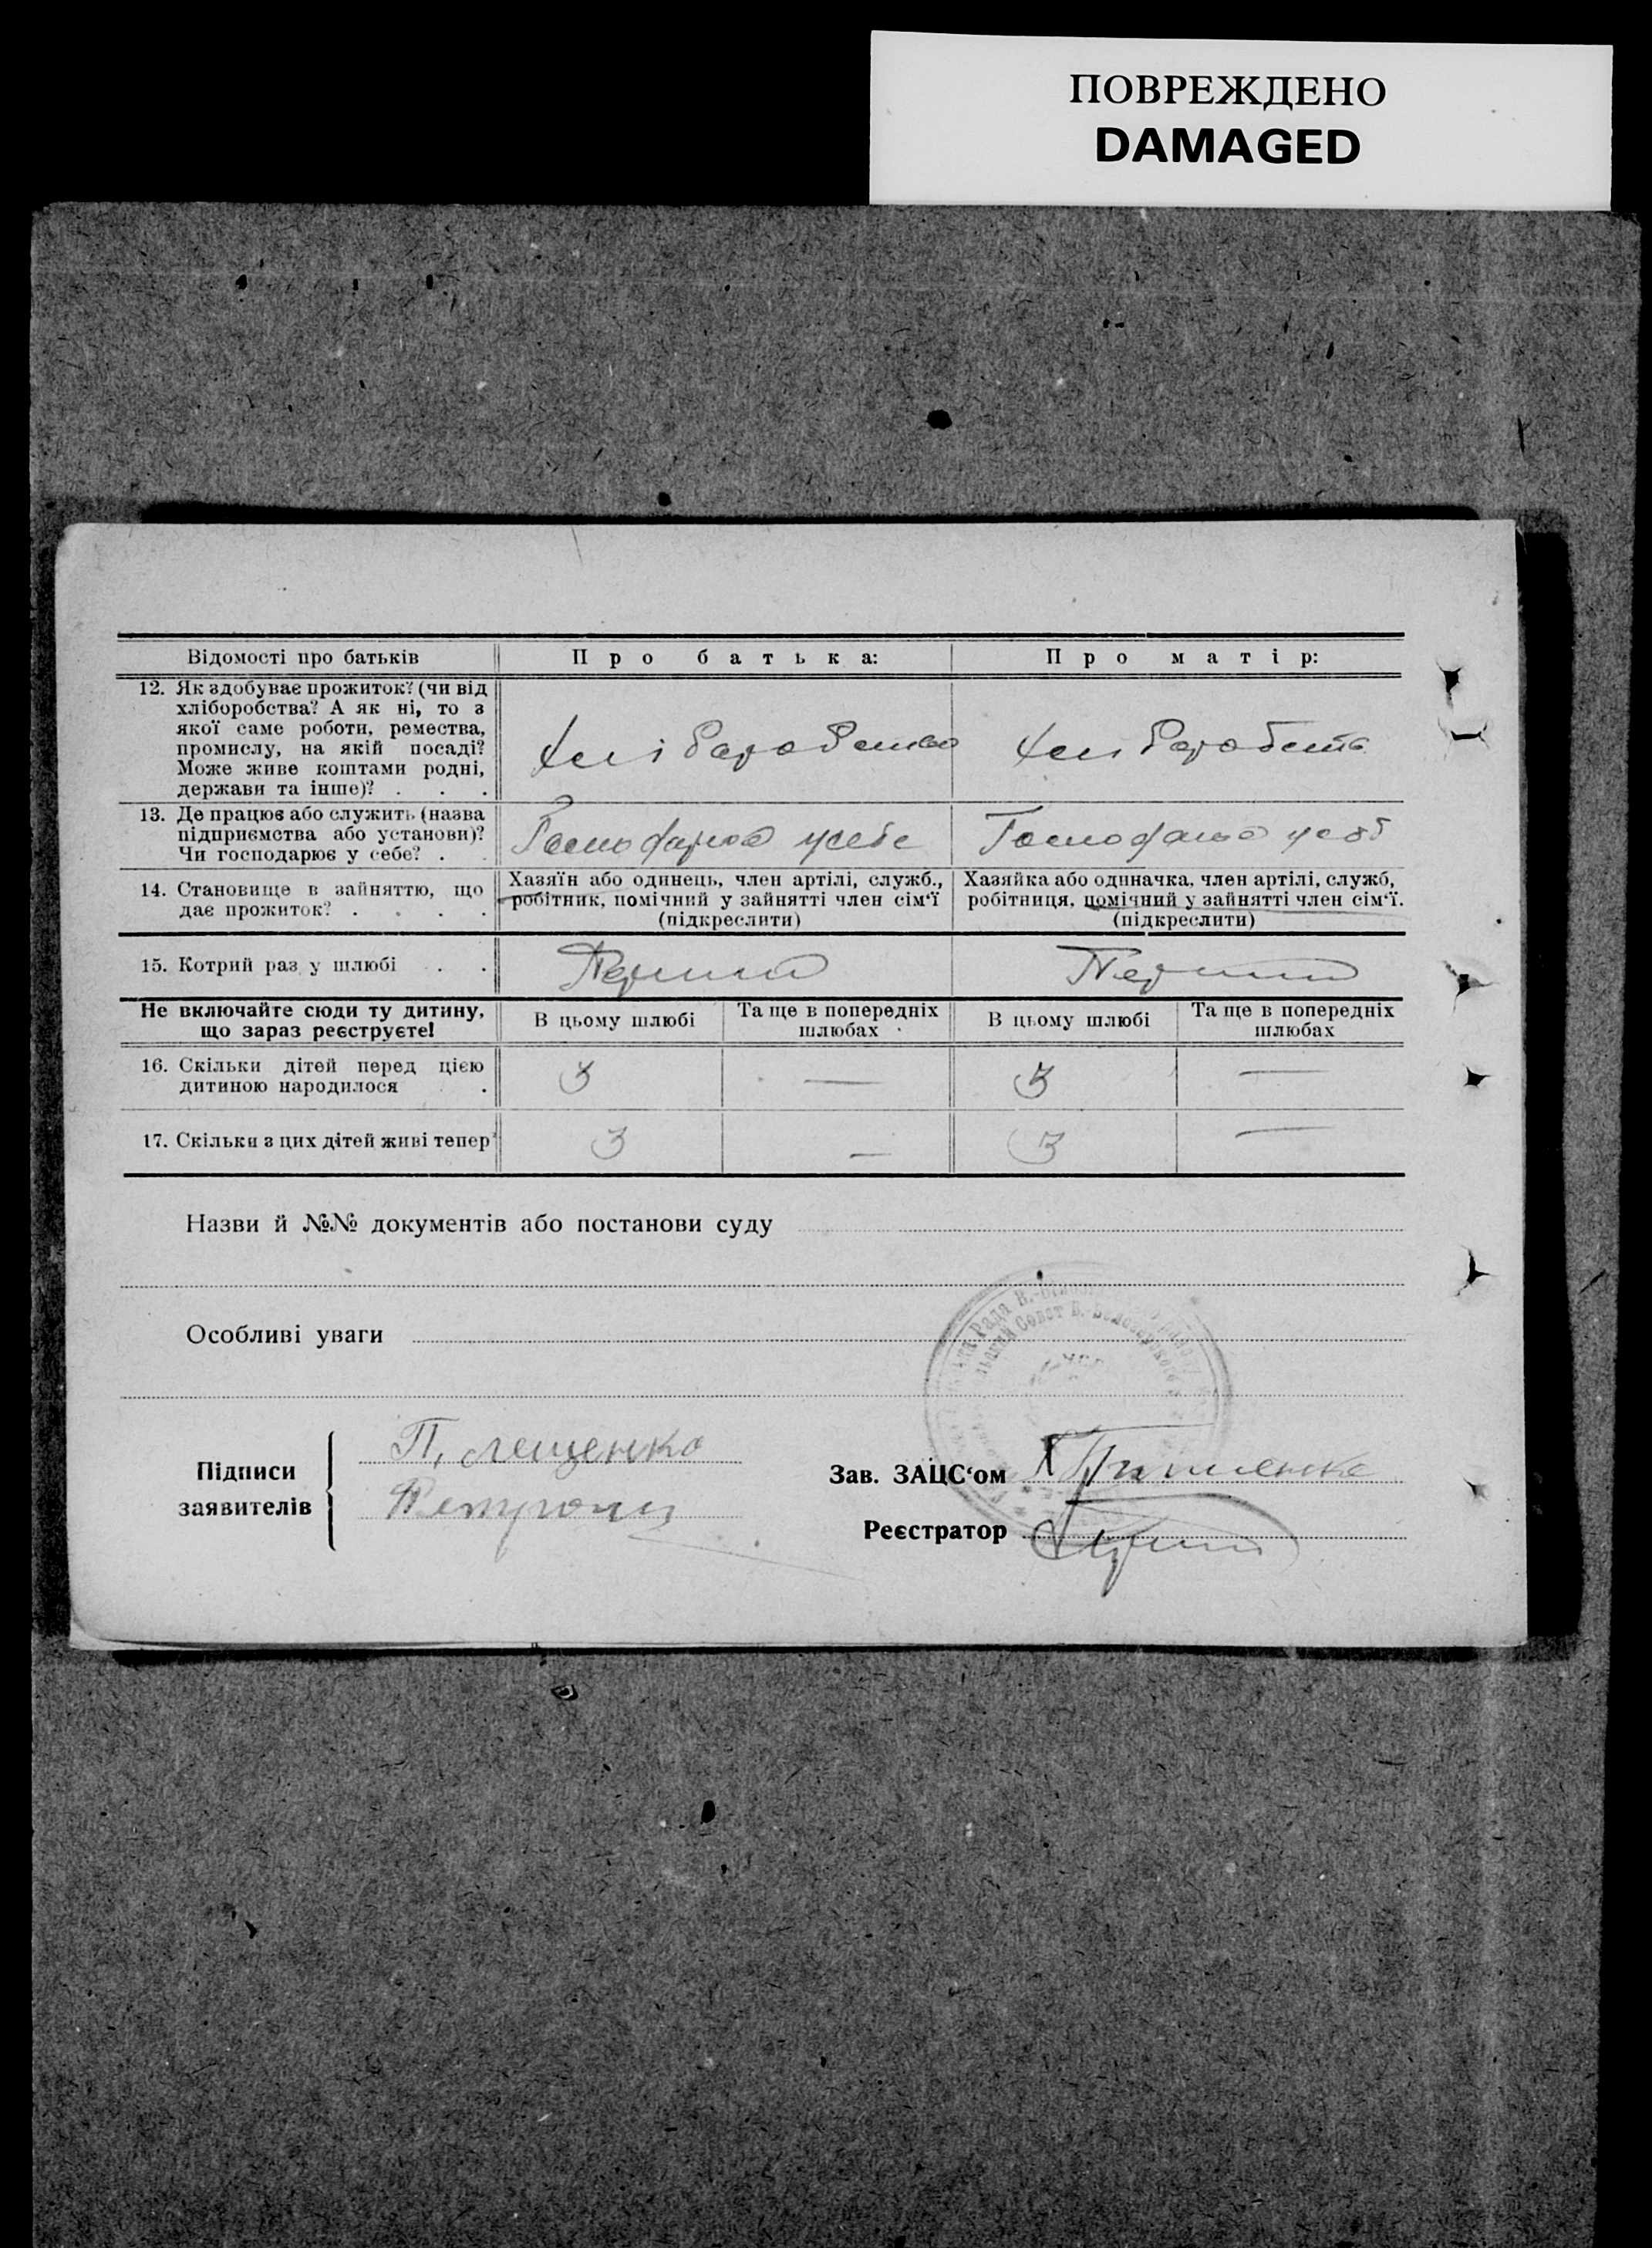 ПОВРЕЖДЕНО
DAMAGED
Відомості про батьків
Про батька:
Про матір:
12. Як здобуває прожиток? (чи від
хліборобства? А як ні, то з
якої саме роботи, ремества,
промислу, на якій посаді?
Може живе коштами родні,
держави та інше)? . . .
13. Де працює або служить (назва
підприємства або установи)?
Чи господарює у себе? . .
Господарює усебе
14. Становище в зайняттю, що
дає прожиток? . . . .
Хазяїн або одинець, член артілі, служб.,
робітник, помічний у зайнятті член сім'ї
(підкреслити)
Хазяйка або одиначка, член артілі, служб,
робітниця, помічний у зайнятті член сім'ї.
(підкреслити)
15. Котрий раз у шлюбі . .
Перший
Перший
Не включайте сюди ту дитину,
що зараз реєструєте!
В цьому шлюбі
Та ще в попередніх
шлюбах
В цьому шлюбі
Та ще в попередніх
шлюбах
16. Скільки дітей перед цією
дитиною народилося .
—
—
17. Скільки з цих дітей живі тепер?
3
—
3
—
Назви й №№ документів або постанови суду
Особливі уваги
Підписи
заявителів
П. Лещенко
Зав. ЗАЦС'ом
Реєстратор